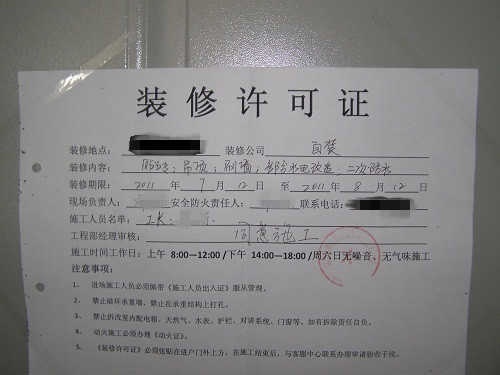 装修许可证
装修地点： 装修公司 自装
装修内容： 吊顶；刷墙；部分水电改造；二次防水
装修期限： 2011 年 7 月 12 日 至 2011 年 8 月 12 日
现场负责人： 安全防火责任人： 联系电话：
施工人员名单：
工程部经理审核： 同意施工
施工时间工作日：上午 8:00—12:00 /下午 14:00—18:00 /周六日无噪音、无气味施工
注意事项：
1、 进场施工人员必须佩带《施工人员出入证》服从管理。
2、 禁止破坏承重墙，禁止在承重结构上打孔。
3、 禁止拆改室内配电箱、天然气、水表、护栏、对讲系统、门窗等，如有拆除责任自负。
4、 动火施工必须办理《动火证》。
5、 《装修许可证》必须张贴在进户门外上方，在施工结束后，与客服中心联系办理申请验收手续。